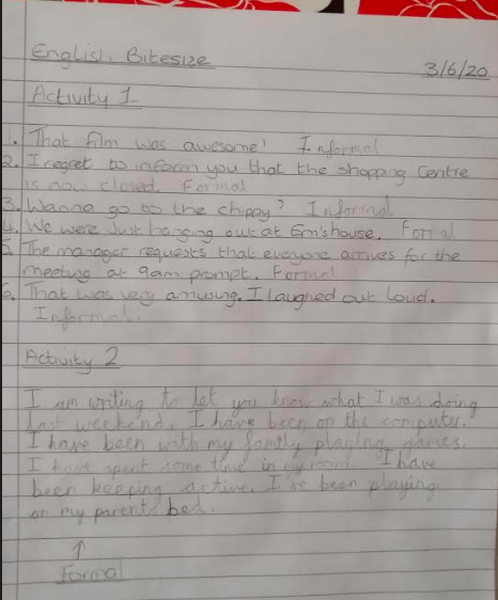 English Bitesize
3/6/20
Activity 1
1. That film was awesome! Informal
2. I regret to inform you that the shopping centre
is now closed. Formal
3. Wanna go to the chippy? Informal
4. We were just hanging out at Em's house. Formal
5. The manager requests that everyone arrives for the
meeting at 9am prompt. Formal
6. That was very amusing. I laughed out loud.
Informal.
Activity 2
I am writing to let you know what I was doing
last weekend. I have been on the computer.
I have been with my family playing games.
I have spent some time in my room. I have
been keeping active. I've been playing
on my parents bed.
↑
Formal